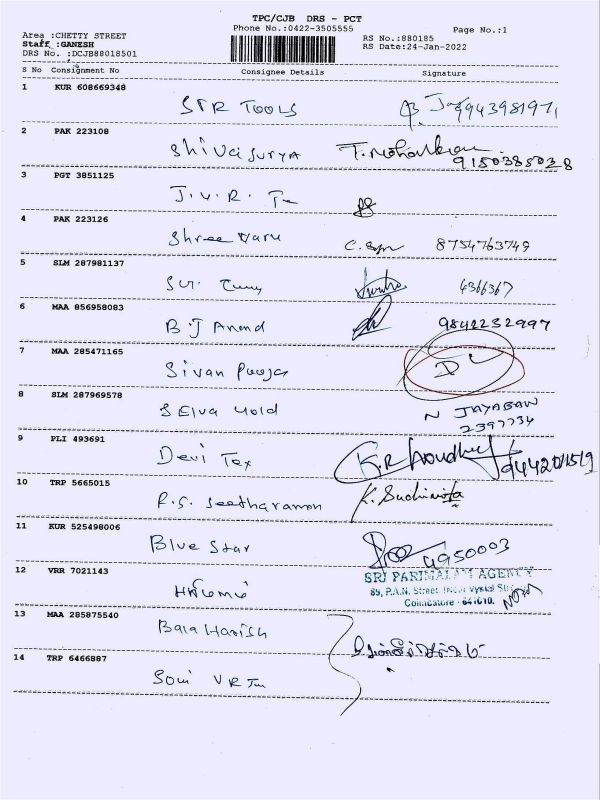 TPC/CJB DRS - PCT
Phone No.:0422-3505555 Page No.:1
Area :CHETTY STREET
Staff :GANESH RS No.:880185
DRS No. :DCJB88018501 RS Date:24-Jan-2022
S No Consignment No Consignee Details Signature
1 KUR 608669348
STR TOOLS
2 PAK 223108
Shivasurya
9150385028
3 PGT 3851125
J.V.R. Tex
4 PAK 223126
Shree Varu 8754763749
5 SLM 287981137
4366367
6 MAA 856958083
B.J Anand 9842232997
7 MAA 285471165
Sivan Pooja
8 SLM 287969578
SElva Gold N JAYABAN
2397734
9 PLI 493691
Devi Tex
10 TRP 5665015
R.S. Seetharaman
11 KUR 525498006
Blue Star 4950003
12 VRR 7021143
SRI PARIMALAM AGENCY
89, P.A.N. Street
Coimbatore - 641010.
13 MAA 285875540
Bala Harish
14 TRP 6466887
Soni V R Tex